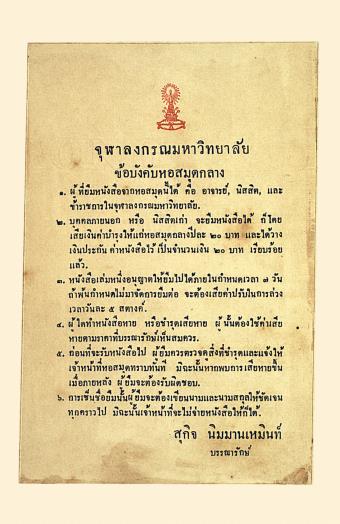 จุฬาลงกรณมหาวิทยาลัย
ข้อบังคับหอสมุดกลาง
๑. ผู้ที่ยืมหนังสือจากหอสมุดนี้ได้ คือ อาจารย์, นิสสิต, และ
ข้าราชการในจุฬาลงกรณมหาวิทยาลัย.
๒. บุคคลภายนอก หรือ นิสสิตเก่า จะยืมหนังสือได้ ก็โดย
เสียเงินค่าบำรุงให้แก่หอสมุดกลางปีละ ๒๐ บาท และได้วาง
เงินประกัน ค่าหนังสือไว้ เป็นจำนวนเงิน ๒๐ บาท เรียบร้อย
แล้ว.
๓. หนังสือเล่มหนึ่งอนุญาตให้ยืมไปได้ภายในกำหนดเวลา ๗ วัน
ถ้าพ้นกำหนดไม่มาจัดการยืมต่อ จะต้องเสียค่าปรับในการล่วง
เวลาวันละ ๕ สตางค์.
๔. ผู้ใดทำหนังสือหาย หรือชำรุดเสียหาย ผู้นั้นต้องใช้ค่าเสีย
หายตามราคาที่บรรณารักษ์เห็นสมควร.
๕. ก่อนที่จะรับหนังสือไป ผู้ยืมควรตรวจดูสิ่งที่ชำรุดและแจ้งให้
เจ้าหน้าที่หอสมุดทราบทันที มิฉะนั้นหากพบการเสียหายขึ้น
เมื่อภายหลัง ผู้ยืมจะต้องรับผิดชอบ.
๖. การเซ็นชื่อยืมนั้นผู้ยืมจะต้องเขียนนามและนามสกุลให้ชัดเจน
ทุกคราวไป มิฉะนั้นเจ้าหน้าที่จะไม่จ่ายหนังสือให้ก็ได้.
สุกิจ นิมมานเหมินท์
บรรณารักษ์